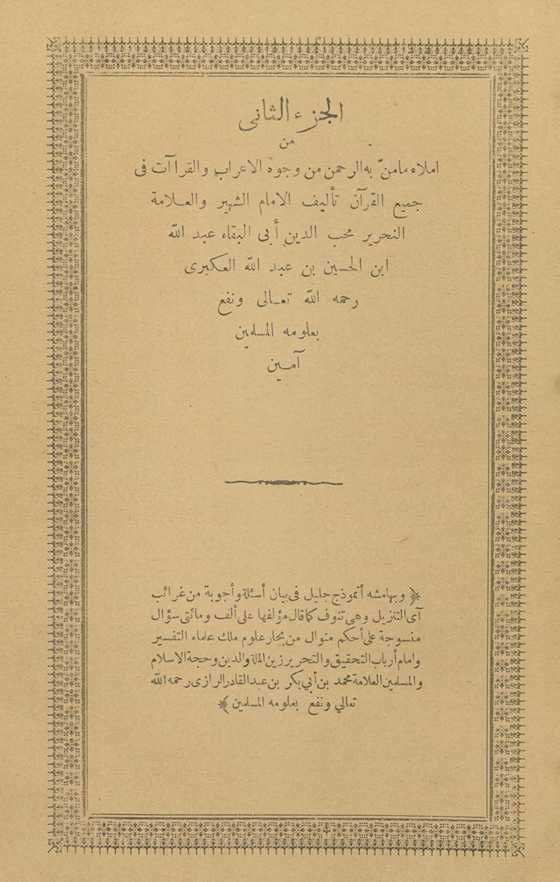 الجزء الثانى
من
املاء مامنّ به الرحمن من وجوه الاعراب والقراآت فى
جميع القرآن تأليف الامام الشهير والعلامة
النحرير محب الدين أبى البقاء عبد الله
ابن الحسين بن عبد الله العكبرى
رحمه الله تعالى ونفع
بعلومه المسلمين
آمين
﴿ وبهامشه أنموذج جليل فى بيان أسئلة وأجوبة من غرائب
آى التنزيل وهى تنوف كما قال مؤلفها على ألف ومائتى سؤال
منسوجة على أحكم منوال من بحار علوم ملك علماء التفسير
وامام أرباب التحقيق والتحرير زين الملة والدين وحجة الاسلام
والمسلمين العلامة محمد بن أبى بكر بن عبد القادر الرازى رحمه الله
تعالى ونفع بعلومه المسلمين ﴾